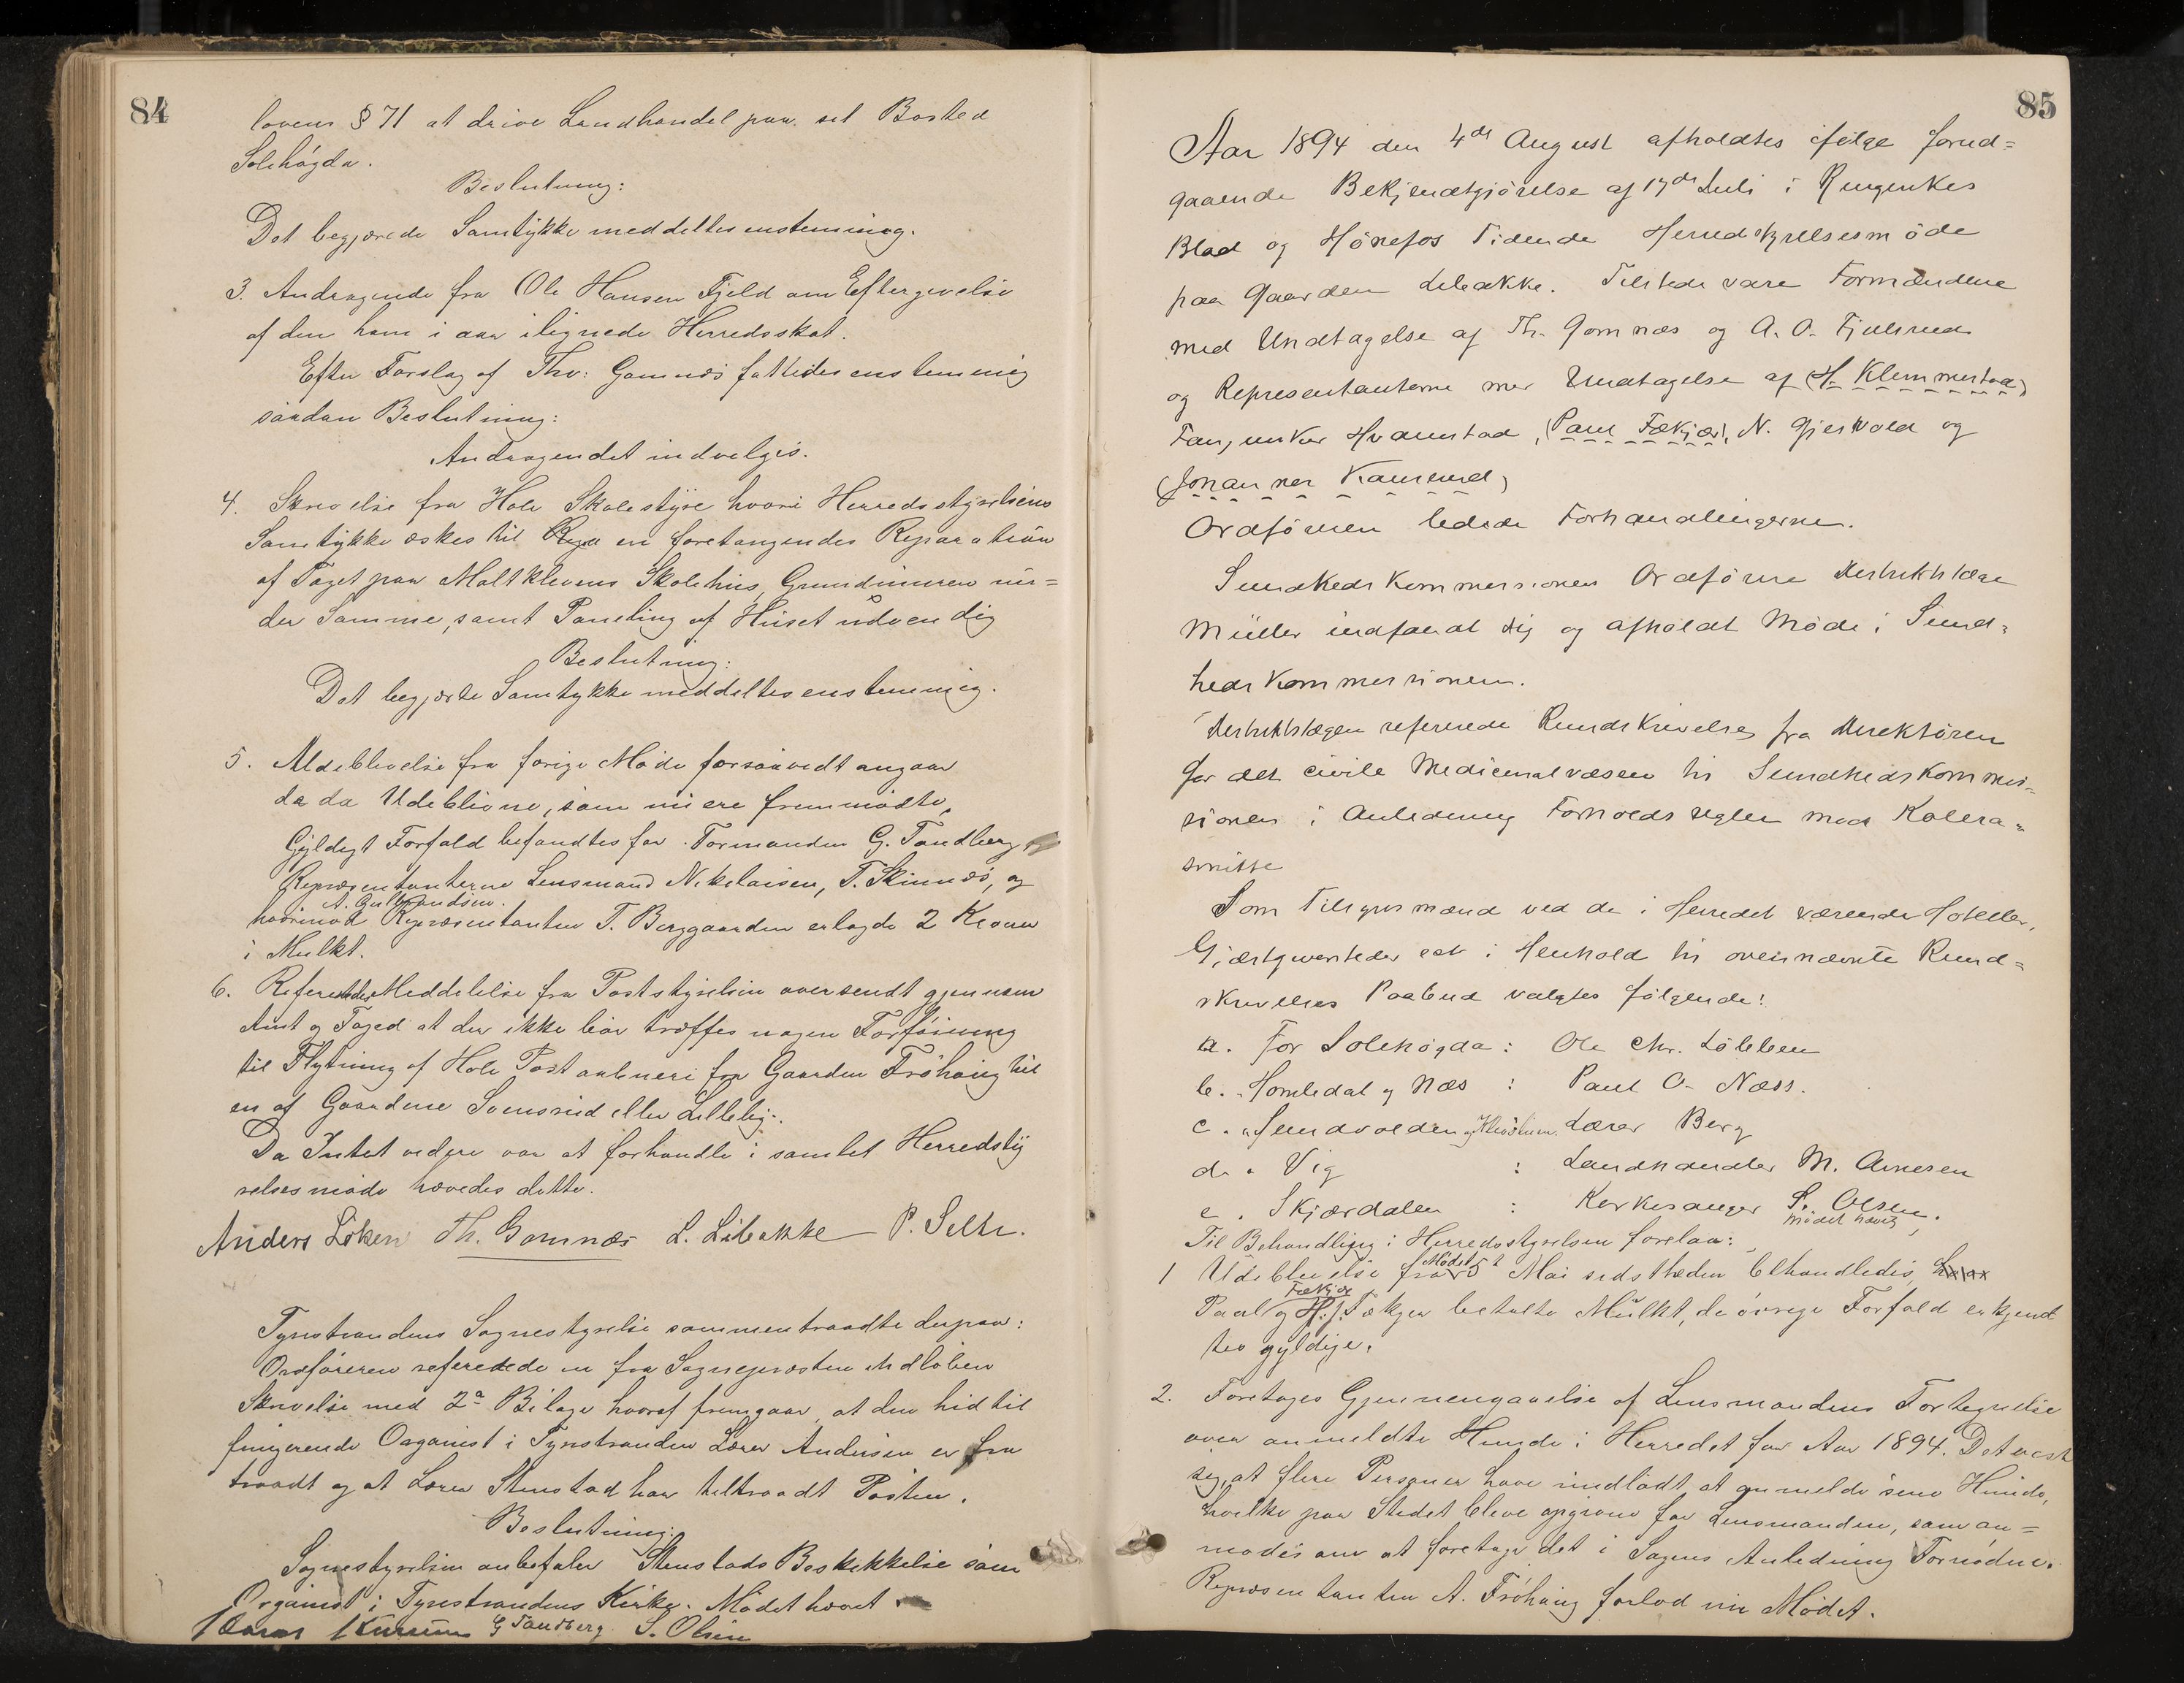 84
lovens § 71 at drive Landhandel paa sit Bosted
Solehögda.
Beslutning:
Det begjærede Samtykke meddeltes enstemmig.
3. Andragende fra Ole Hansen Fjeld om Eftergivelse
af den ham i aar ilignede Herredsskat.
Efter Forslag af Thv: Gomnæs fattedes enstemmig
saadan Beslutning:
Andragendet indvilges.
4. Skrivelse fra Hole Skolestyre hvori Herredsstyrelsens
Samtykke æskes til en foretagendes Reparation
af Taget paa Maltklevens Skolehus, Grundmuren un=
der Samme, samt Paneling af Huset udvendig
Beslutning:
Det begjærte Samtykke meddeltes enstemmig.
5. Udeblivelse fra forige Möde forsaavidt angaar
de da Udeblivne, som nu ere fremmödte,
Gyldigt Forfald befandtes for Formanden G. Tandberg
Repræsentanterne Lensmand Nikolaisen, T. Skinnæs, og
A. Gulbrandsen.
hvorimod Repræsentanten T. Berggaarden erlagde 2 Kroner
i Mulkt.
6. Refereredes Meddelelse fra Poststyrelsen oversendt gjennem
Amt og Foged at der ikke bör træffes nogen Forföining
til Flytning af Hole Postaabneri fra Gaarden Fröhaug til
en af Gaardene Svensrud eller Lillelig.
Da Intet videre var at forhandle i samlet Herredsty
relsesmöde hævedes dette.
Anders Löken Th. Gomnæs L. Libakke P. Selte.
Tyristrandens Sognestyrelse sammentraadte derpaa:
Ordföreren refererede en fra Sognepræsten indlöben
Skrivelse med 2 Bilage hvoraf fremgaar, at den hidtil
fungerende Organist i Tyristranden Lærer Andersen er fra
traadt og at Lærer Stenstad har tiltraadt Posten.
Beslutning:
Sognestyrelsen anbefaler Stenstads Beskikkelse som
Organist i Tyristrandens Kirke. Mödet hævet
G Tandberg S. Olsen
85
Aar 1894 den 4de August afholdtes ifölge forud=
gaaende Bekjendtgjörelse af 17de Juli i Ringerikes
Blad og Hönefos Tidende Herredsstyrelsesmöde
paa Gaarden Libakke. Tilstede vare Formændene
med Undtagelse af Th. Gomnæs og A. O. Fjulsrud
og Representanterne med Undtagelse af (H. Klemmestad)
Fanejunker Hvamstad, (Paul Fækjær), N. Gjesvold og
(Johannes Kamrud)
Ordföreren ledede Forhandlingerne.
Sundhedskommissionens Ordförer Distriktslæge
Müller indfandt sig og afholdt Möde i Sund=
hedskommissionen.
Distriktslægen refererede Rundskrivelse fra Direktören
for det civile Medicinalvæsen til Sundhedskommis=
sionen i Anledning Forholdsregler mod Kolera=
smitte
Som Tilsynsmænd ved de i Herredet værende Hoteller,
Gjæstgiversteder etc i Henhold til ovennævnte Rund=
skrivelses Paabud valgtes fölgende:
a. For Solehögda: Ole Chr. Löbben
b. " Homledal og Næs : Paul O. Næss.
c. " Sundvolden og Kleivstuen. Lærer Berg
d. " Vig : Landhandler M. Arnesen
e. " Skjærdalen : Kirkesanger S. Olsen.
Mödet hævet
Til Behandling i Herredsstyrelsen forelaa:
1 Udeblivelse fra Mödet 5t Mai sidstleden behandledes,
Fækjær
Paul og H. J. Fækjer betalte Mulkt, de övrige Forfald erkjend
tes gyldige.
2. Foretoges Gjennemgaaelse af Lensmandens Fortegnelse
over anmeldte Hunde i Herredet for Aar 1894. Det viste
sig, at flere Personer have undladt at anmelde sine Hunde,
hvilke paa Stedet bleve opgivne for Lensmanden, som an=
modes om at foretage det i Sagens Anledning Fornödne.
Repræsentanten A. Fröhaug forlod nu Mödet.